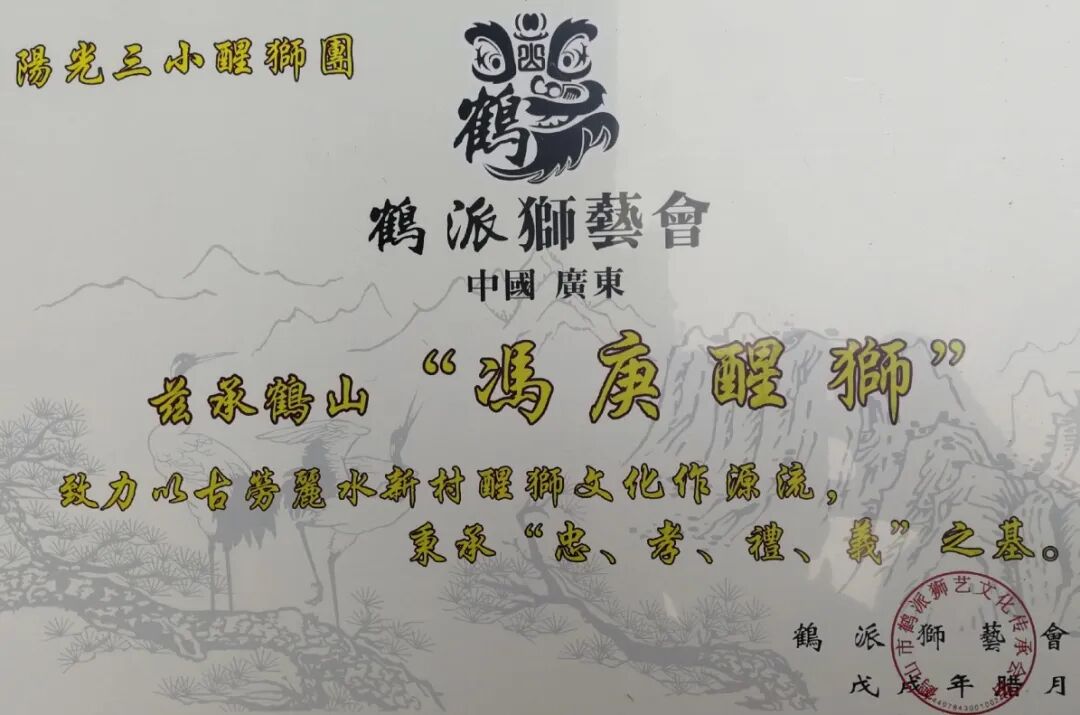 陽光三小醒獅團
鶴
鶴派獅藝會
中國 廣東
兹承鶴山“馮庚醒獅”
致力以古勞麗水新村醒獅文化作源流，
秉承“忠、孝、禮、義”之基。
鶴派獅藝會
戊戌年腊月
鹤山市鹤派狮艺文化传承会